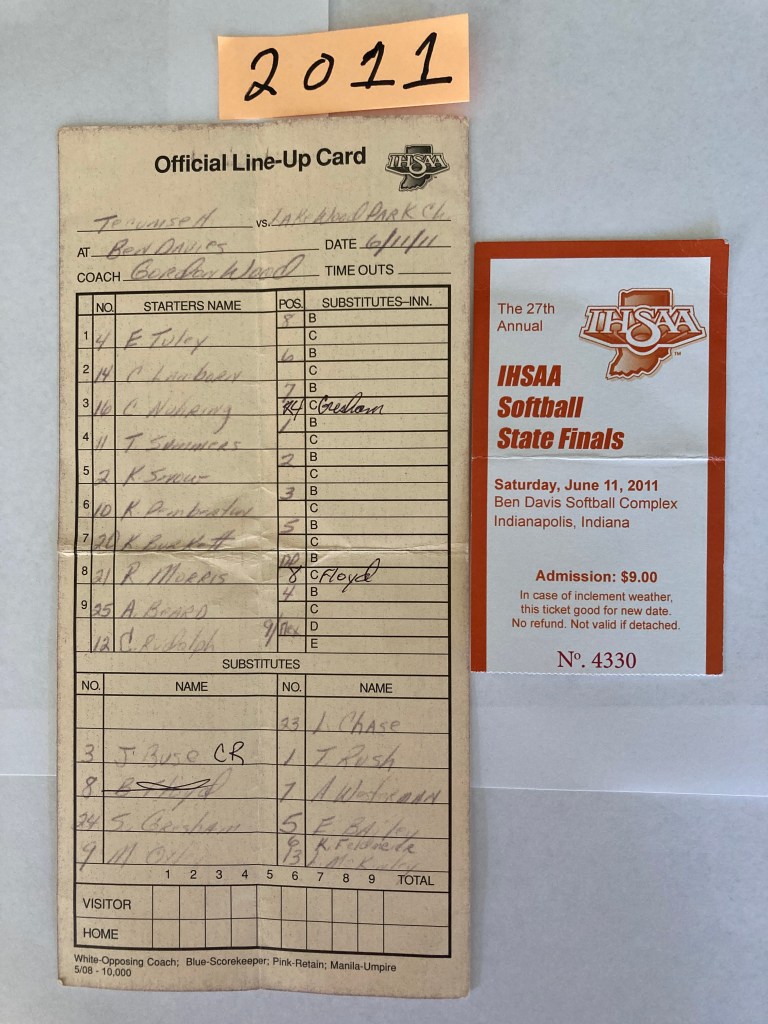 2011
Official Line-Up Card
IHSAA
Tecumseh vs. Lakewood Park Ch
AT Ben Davies DATE 6/11/11
COACH Gordon Wood TIME OUTS
NO. STARTERS NAME POS. SUBSTITUTES–INN.
1 4 E Tuley 8 B
C
2 14 C Lamborn 6 B
C
3 16 C Nuhring 7 B
24 C Gresham
4 11 T Summers 1 B
C
5 2 K 2 B
C
6 10 K Pemberton 3 B
C
7 20 K Burkett 5 B
C
8 21 R Morris DP B
8 C Floyd
9 25 A. Beard 4 B
C
12 C. Rudolph 9/ D
E
SUBSTITUTES
NO. NAME NO. NAME
23 L. Chase
3 J. Buse CR 1 T. Rush
8 B Floyd 7 A Westerman
24 S. Gresham 5 E Bailey
9 M 6 K.
13
1 2 3 4 5 6 7 8 9 TOTAL
VISITOR
HOME
White-Opposing Coach; Blue-Scorekeeper; Pink-Retain; Manila-Umpire
5/08 - 10,000
The 27th
Annual
IHSAA
TM
IHSAA
Softball
State Finals
Saturday, June 11, 2011
Ben Davis Softball Complex
Indianapolis, Indiana
Admission: $9.00
In case of inclement weather,
this ticket good for new date.
No refund. Not valid if detached.
No. 4330